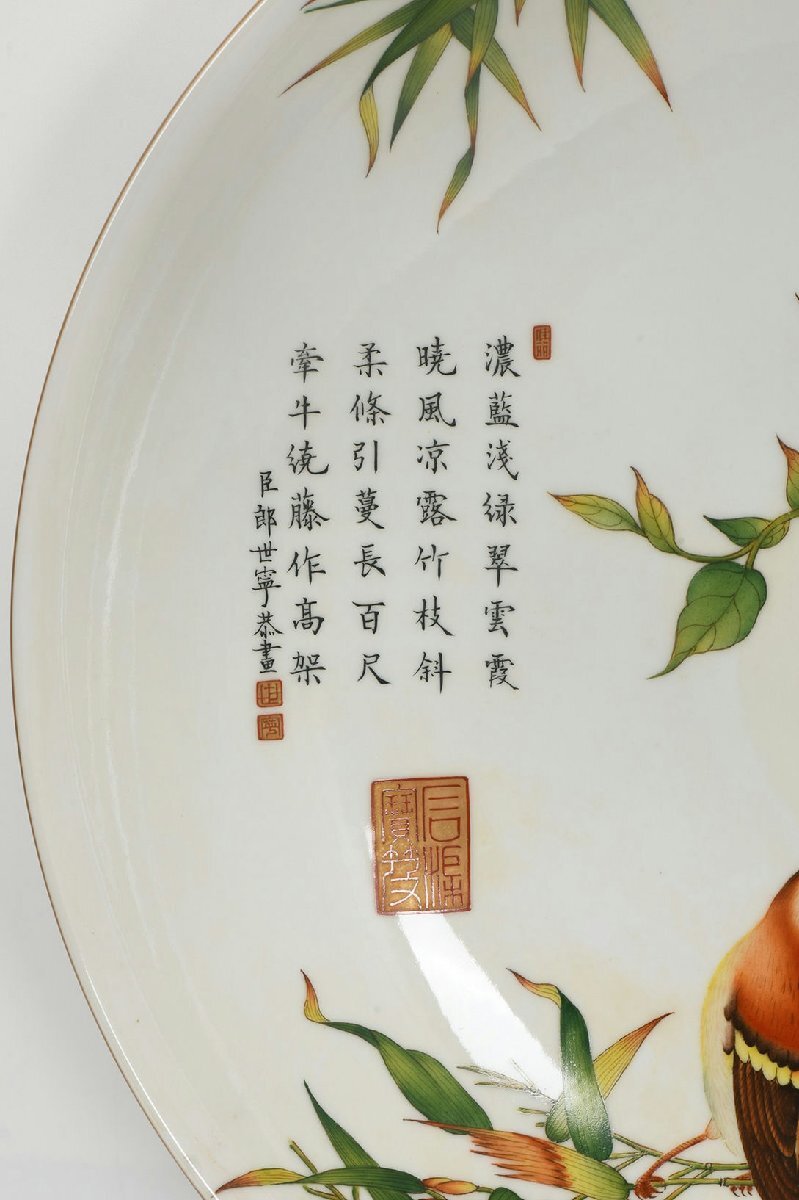 濃藍淺绿翠雲霞
曉風凉露竹枝斜
柔條引蔓長百尺
牽牛繞藤作高架
臣郎世寧恭畫
世
寧